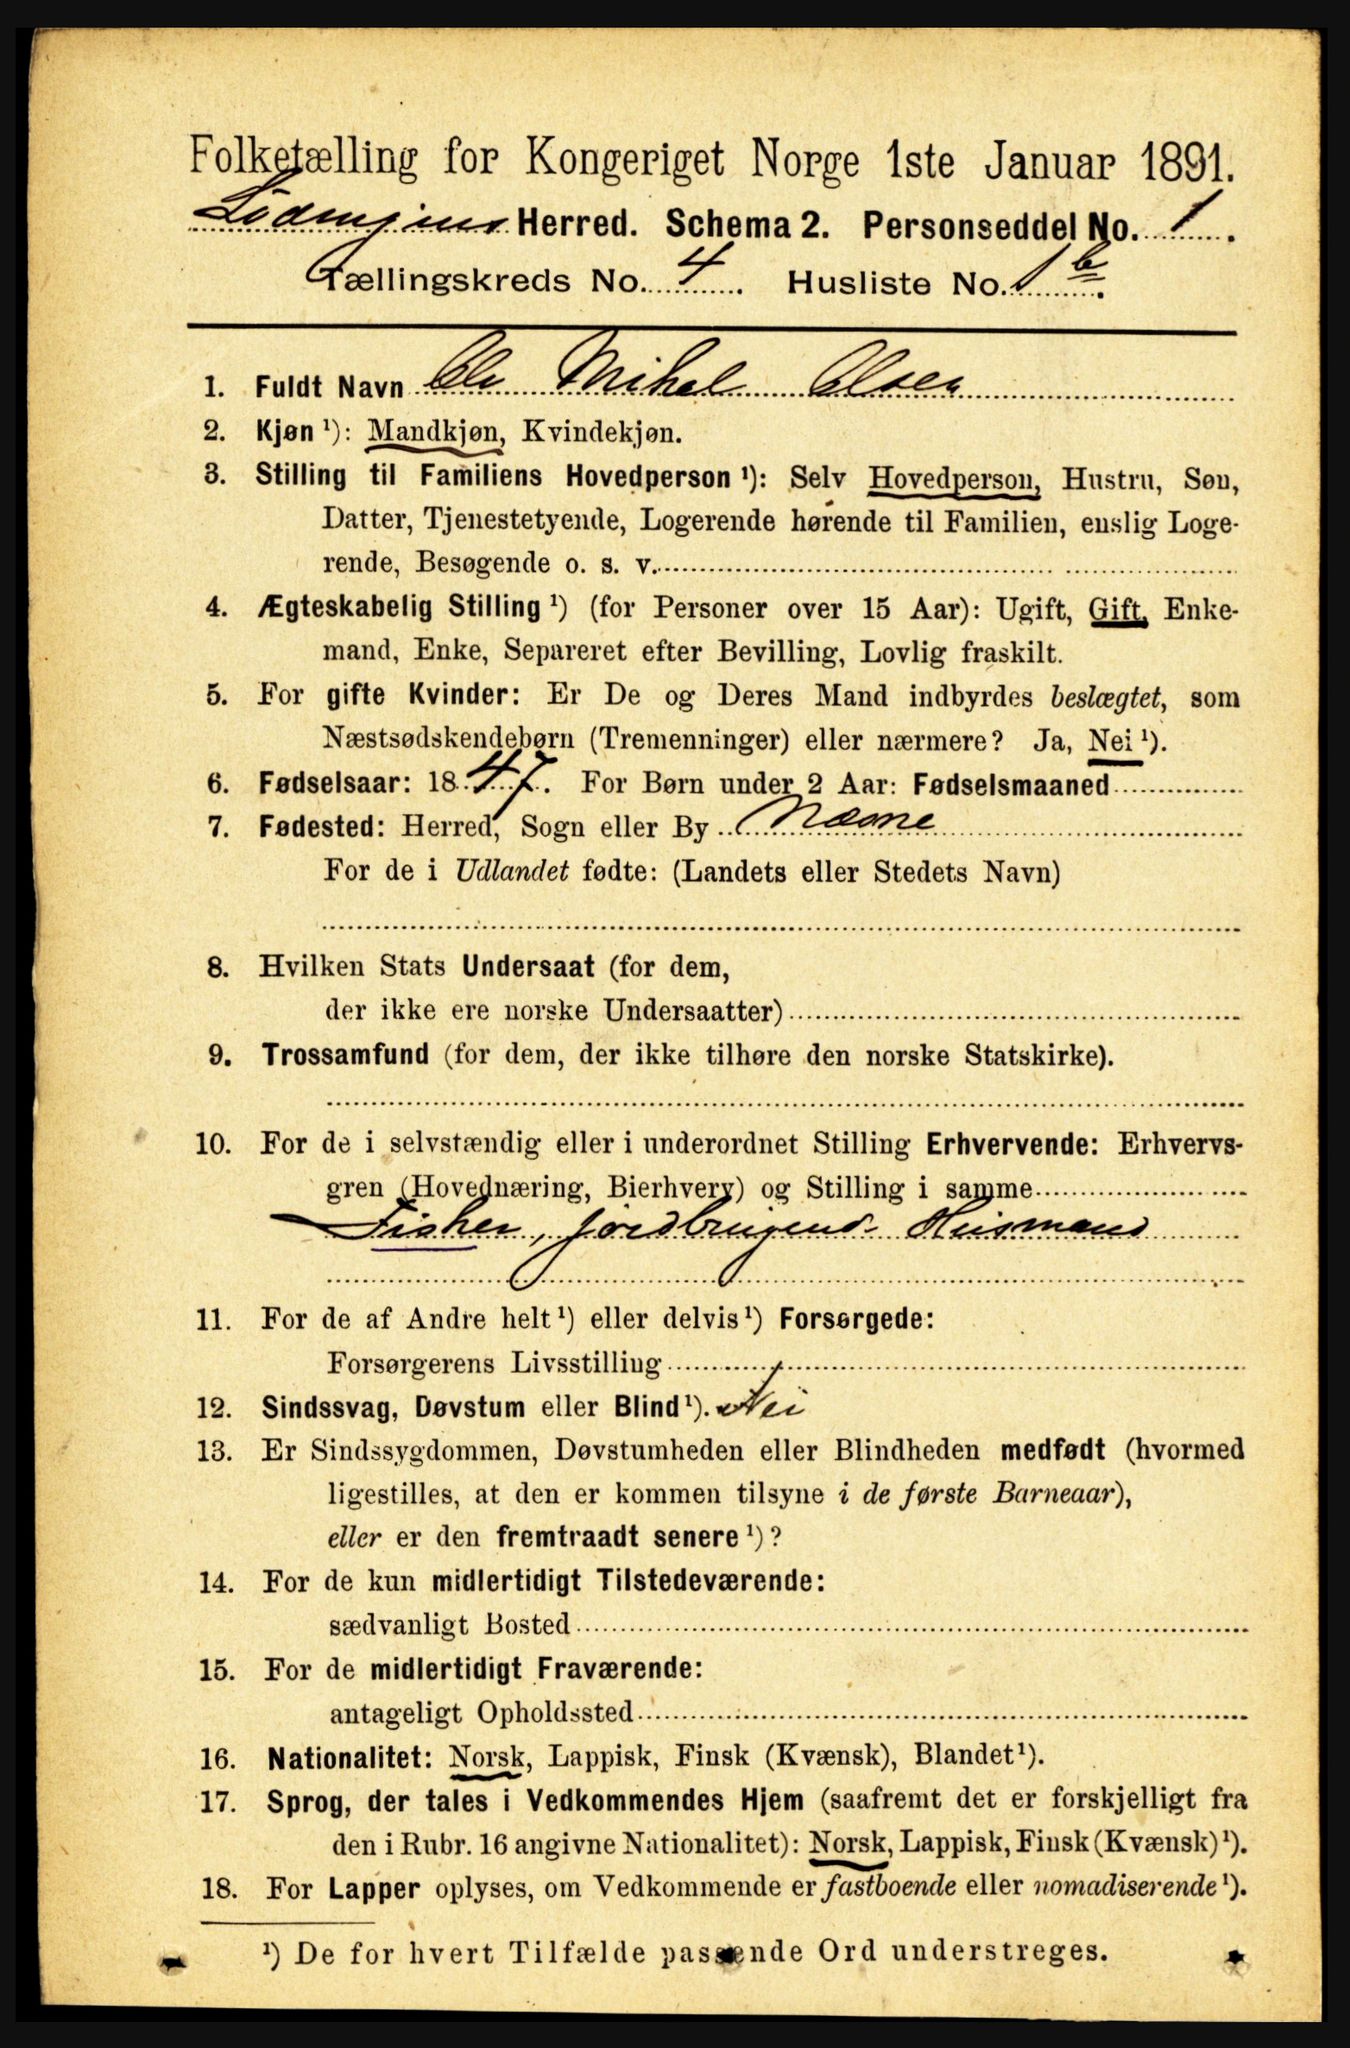 Folketælling for Kongeriget Norge 1ste Januar 1891.
Lødingens Herred. Schema 2. Personseddel No. 1.
Tællingskreds No. 4. Husliste No. 1 b.
1. Fuldt Navn Ole Mikal Olsen
2. Kjøn ¹): Mandkjøn, Kvindekjøn.
3. Stilling til Familiens Hovedperson ¹): Selv Hovedperson, Hustru, Søn,
Datter, Tjenestetyende, Logerende hørende til Familien, enslig Loge-
rende, Besøgende o. s. v.
4. Ægteskabelig Stilling ¹) (for Personer over 15 Aar): Ugift, Gift, Enke-
mand, Enke, Separeret efter Bevilling, Lovlig fraskilt.
5. For gifte Kvinder: Er De og Deres Mand indbyrdes beslægtet, som
Næstsødskendebørn (Tremenninger) eller nærmere? Ja, Nei ¹).
6. Fødselsaar: 1847. For Børn under 2 Aar: Fødselsmaaned
7. Fødested: Herred, Sogn eller By Næsne
For de i Udlandet fødte: (Landets eller Stedets Navn)
8. Hvilken Stats Undersaat (for dem,
der ikke ere norske Undersaatter)
9. Trossamfund (for dem, der ikke tilhøre den norske Statskirke).
10. For de i selvstændig eller i underordnet Stilling Erhvervende: Erhvervs-
gren (Hovednæring, Bierhverv) og Stilling i samme
Fisker, jordbrugende Husmand
11. For de af Andre helt ¹) eller delvis ¹) Forsørgede:
Forsørgerens Livsstilling
12. Sindssvag, Døvstum eller Blind ¹). Nei
13. Er Sindssygdommen, Døvstumheden eller Blindheden medfødt (hvormed
ligestilles, at den er kommen tilsyne i de første Barneaar),
eller er den fremtraadt senere ¹)?
14. For de kun midlertidigt Tilstedeværende:
sædvanligt Bosted
15. For de midlertidigt Fraværende:
antageligt Opholdssted
16. Nationalitet: Norsk, Lappisk, Finsk (Kvænsk), Blandet ¹).
17. Sprog, der tales i Vedkommendes Hjem (saafremt det er forskjelligt fra
den i Rubr. 16 angivne Nationalitet): Norsk, Lappisk, Finsk (Kvænsk) ¹).
18. For Lapper oplyses, om Vedkommende er fastboende eller nomadiserende ¹).
¹) De for hvert Tilfælde passende Ord understreges.